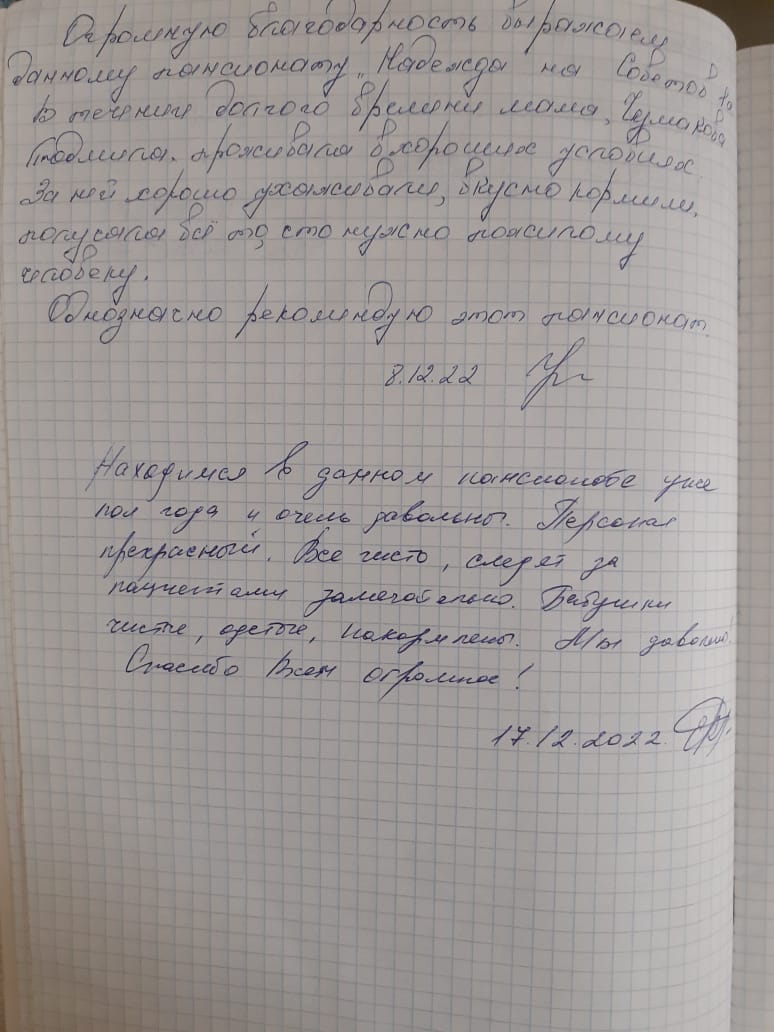 Огромную благодарность выражаем
данному пансионату „Надежда на Советов
В течении долгого времени мама, Чермакова
Людмила. проживала в хороших условиях.
За ней хорошо ухаживали, вкусно кормили,
получала всё то, сто нужно пожилому
человеку.
Однозначно рекомендую этот пансионат.
8.12.22
Находимся в данном пансионате уже
пол года и очень давольны. Персонал
прекрасный. Все чисто, следят за
пациентами замечательно. Бабушки
чистые, одетые, накормлены. Мы давольны.
Спасибо Всем огромное!
17.12.2022